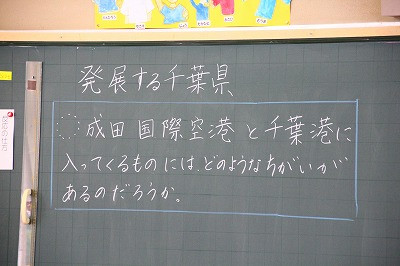 発展する千葉県
成田国際空港と千葉港に
入ってくるものには、どのようなちがいが
あるのだろうか。